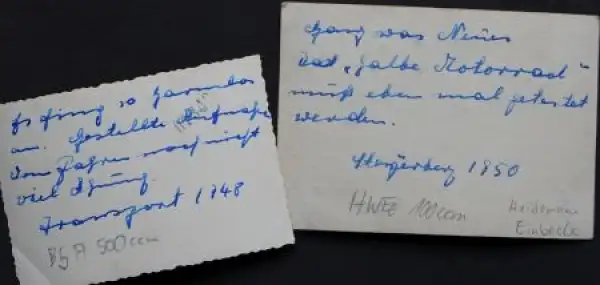 Es fing so harmlos
an. Gestellte Aufnahme
vom Fahren noch nicht
viel Ahnung.
Transport 1948
BSA 500 ccm
Ganz was Neues
Das „halbe Motorrad“
muß eben mal getestet
werden.
1950
HWE 100 ccm
Heidemann
Einbeck